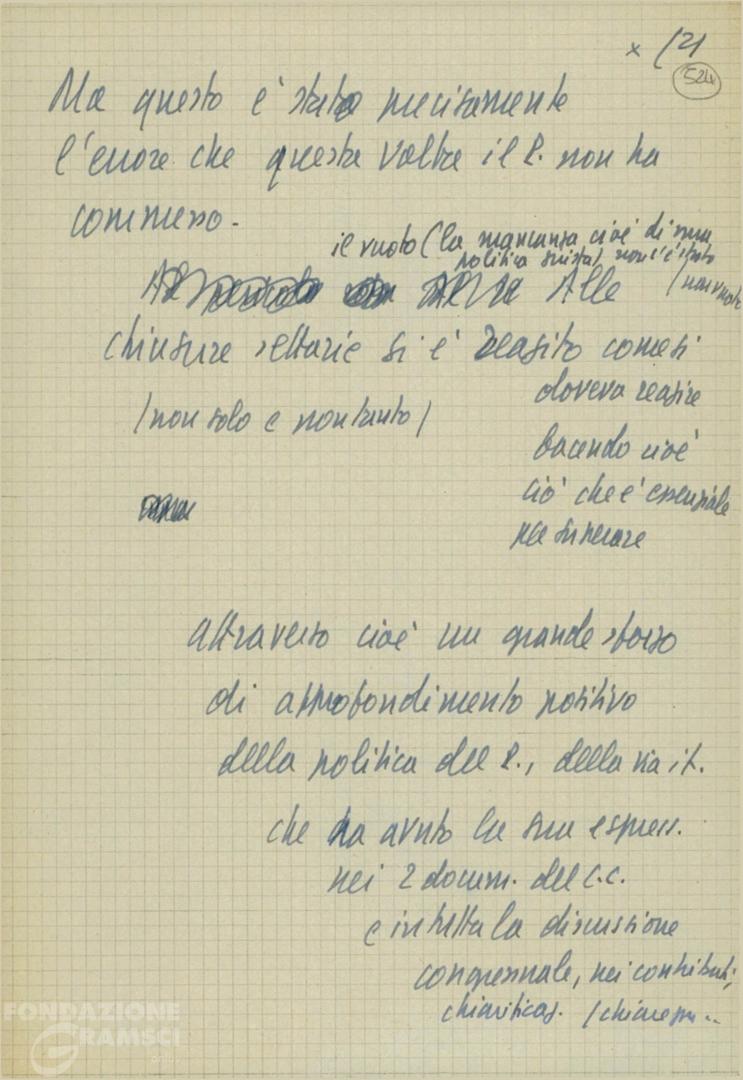 x (21
524
Ma questo è stato precisamente
l'errore che questa volta il P. non ha
commesso.
il vuoto (la mancanza cioè di una
politica giusta) non c'è stato
Alle / non vuoto
chiusure settarie si è reagito come si
doveva reagire
/non solo e non tanto/
facendo cioè
ciò che è essenziale
per superare
attraverso cioè un grande sforzo
di approfondimento positivo
della politica del P., della via it.
che ha avuto la sua espress.
nei 2 docum. del C.C.
e in tutta la discussione
congressuale, nei contributi,
chiarificaz. /chiarezza..
FONDAZIONE
GRAMSCI